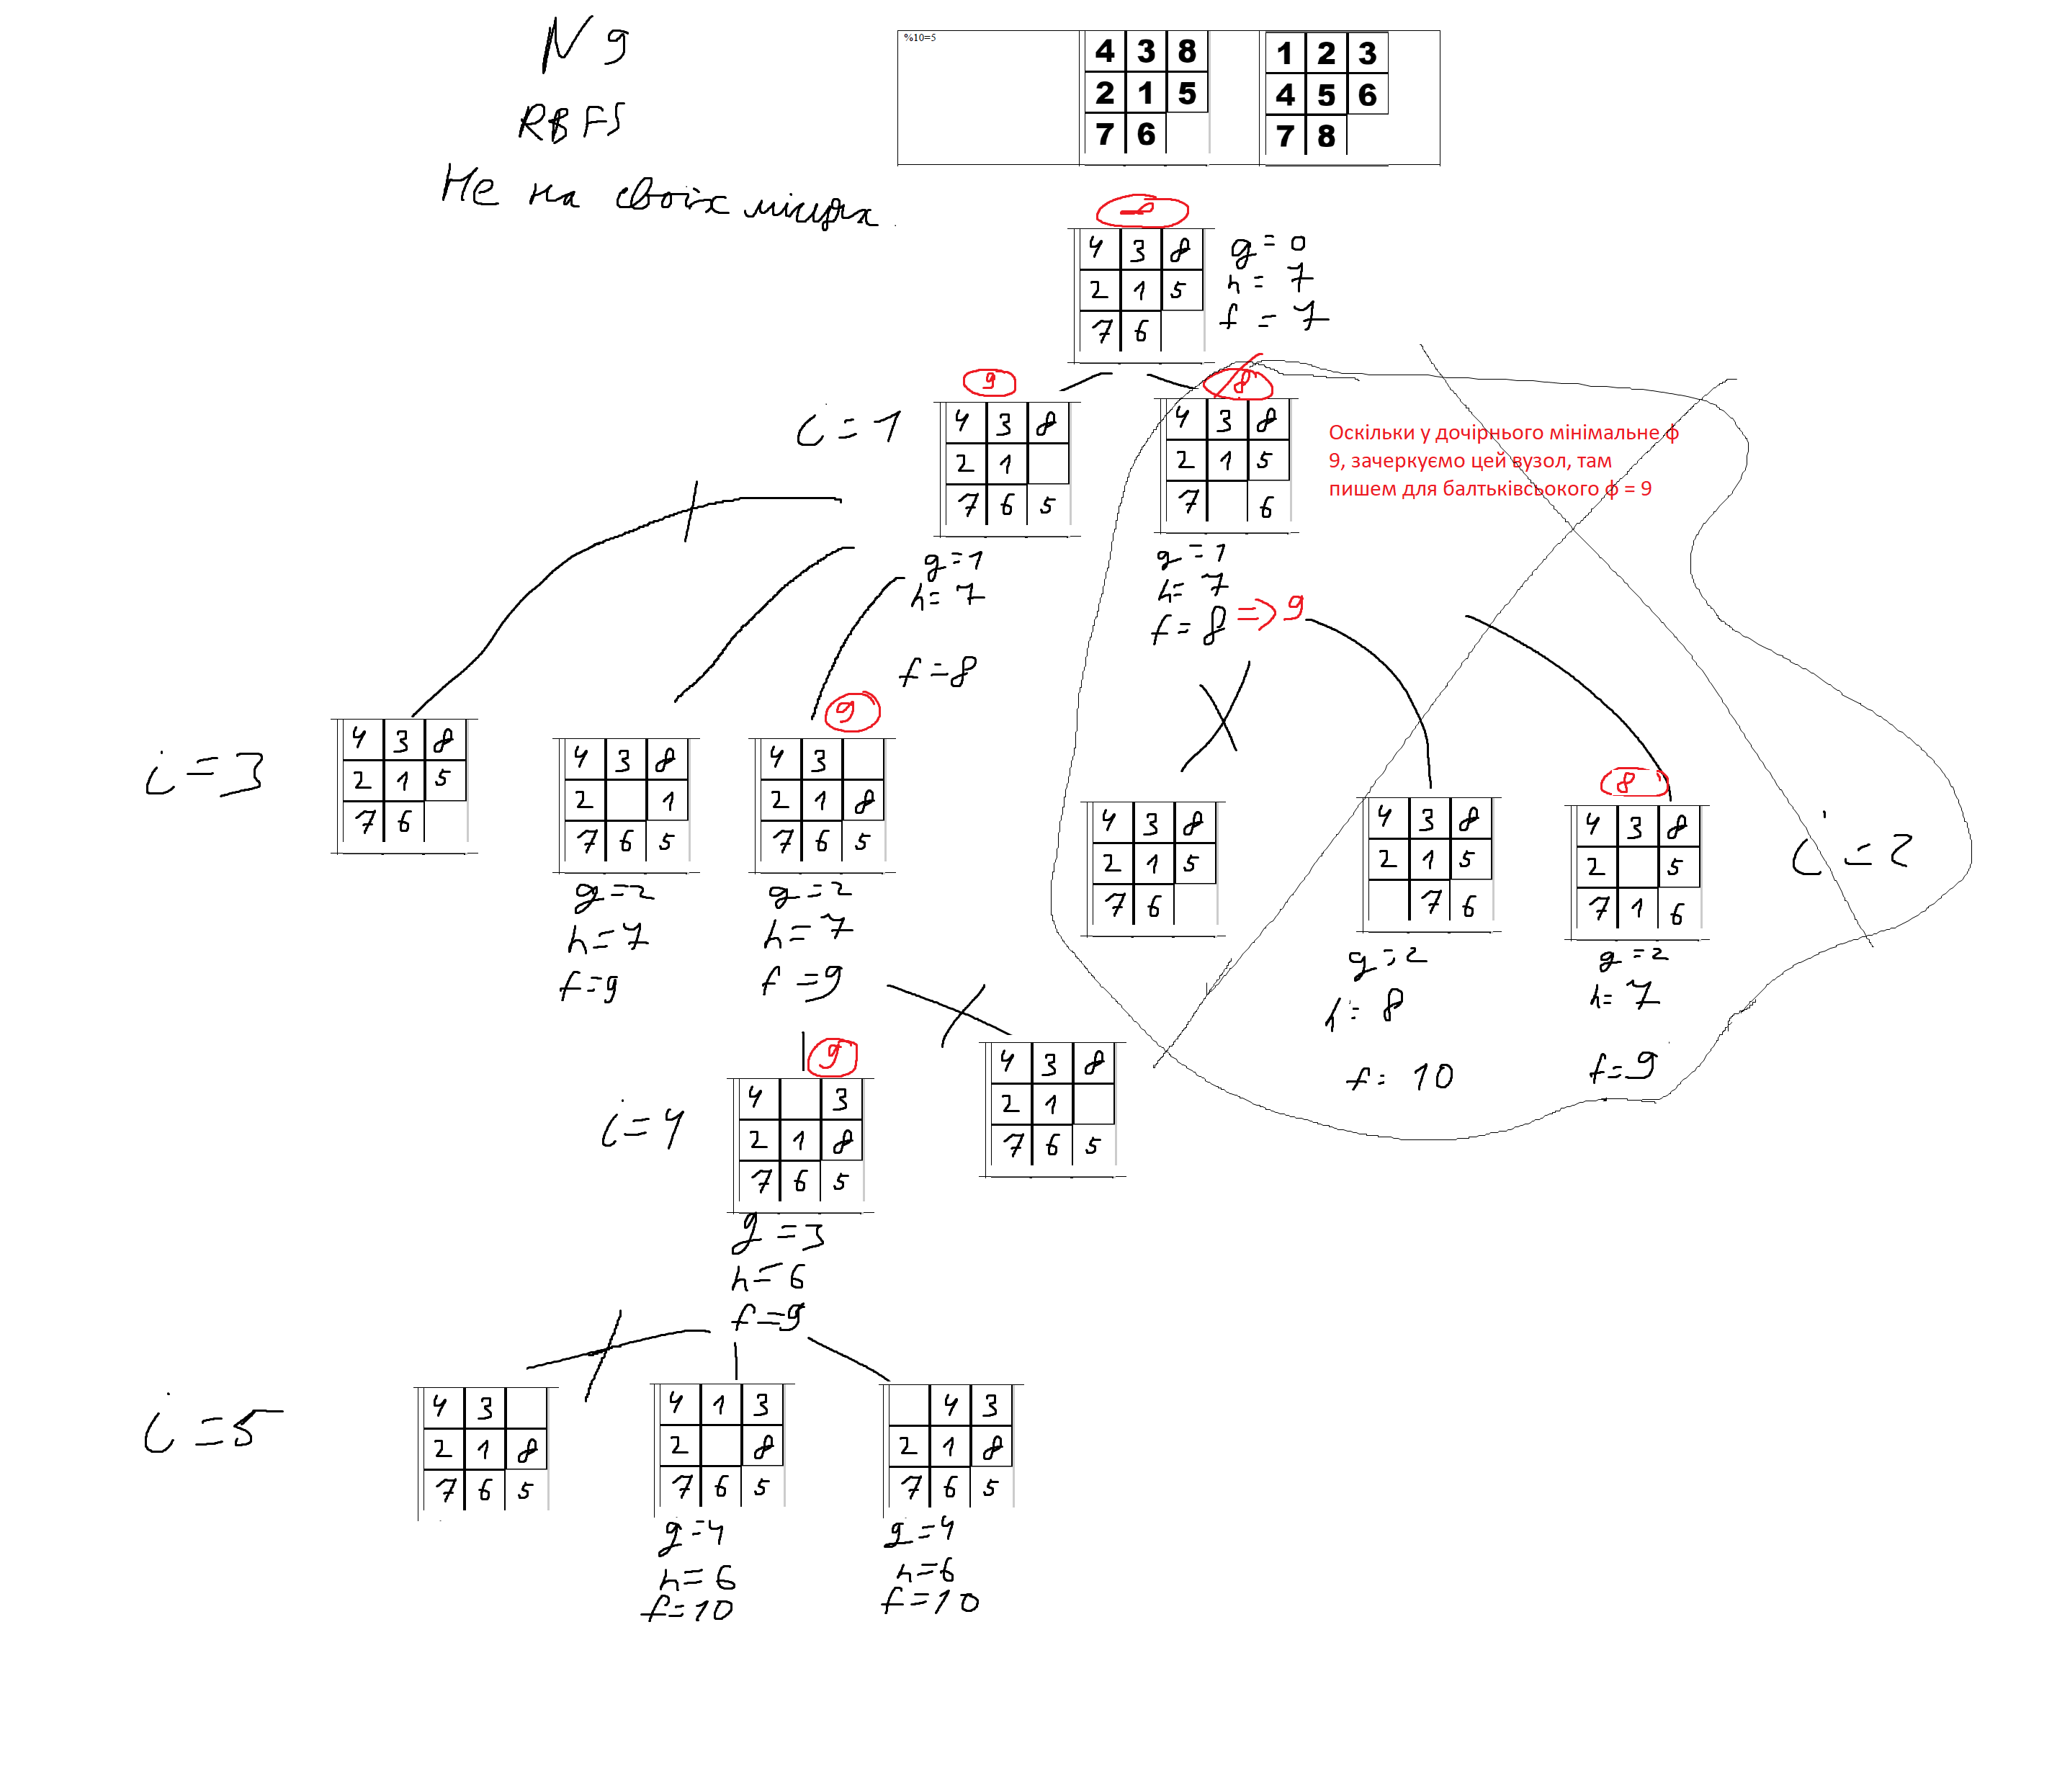 N 9
RBFS
Не на своїх місцях
%10=5
4 3 8
2 1 5
7 6
1 2 3
4 5 6
7 8
4 3 8
2 1 5
7 6
g = 0
h = 7
f = 7
i = 1
9
4 3 8
2 1
7 6 5
g = 1
h = 7
f = 8
8
4 3 8
2 1 5
7 6
g = 1
h = 7
f = 8 => 9
Оскільки у дочірнього мінімальне ф
9, зачеркуємо цей вузол, там
пишем для балтьківсьокого ф = 9
i = 2
4 3 8
2 1 5
7 6
4 3 8
2 1 5
7 6
g = 2
h = 8
f = 10
8
4 3 8
2 5
7 1 6
g = 2
h = 7
f = 9
i = 3
4 3 8
2 1 5
7 6
4 3 8
2 1
7 6 5
g = 2
h = 7
f = 9
9
4 3
2 1 8
7 6 5
g = 2
h = 7
f = 9
i = 4
9
4 3
2 1 8
7 6 5
g = 3
h = 6
f = 9
4 3 8
2 1
7 6 5
i = 5
4 3
2 1 8
7 6 5
4 1 3
2 8
7 6 5
g = 4
h = 6
f = 10
4 3
2 1 8
7 6 5
g = 4
h = 6
f = 10